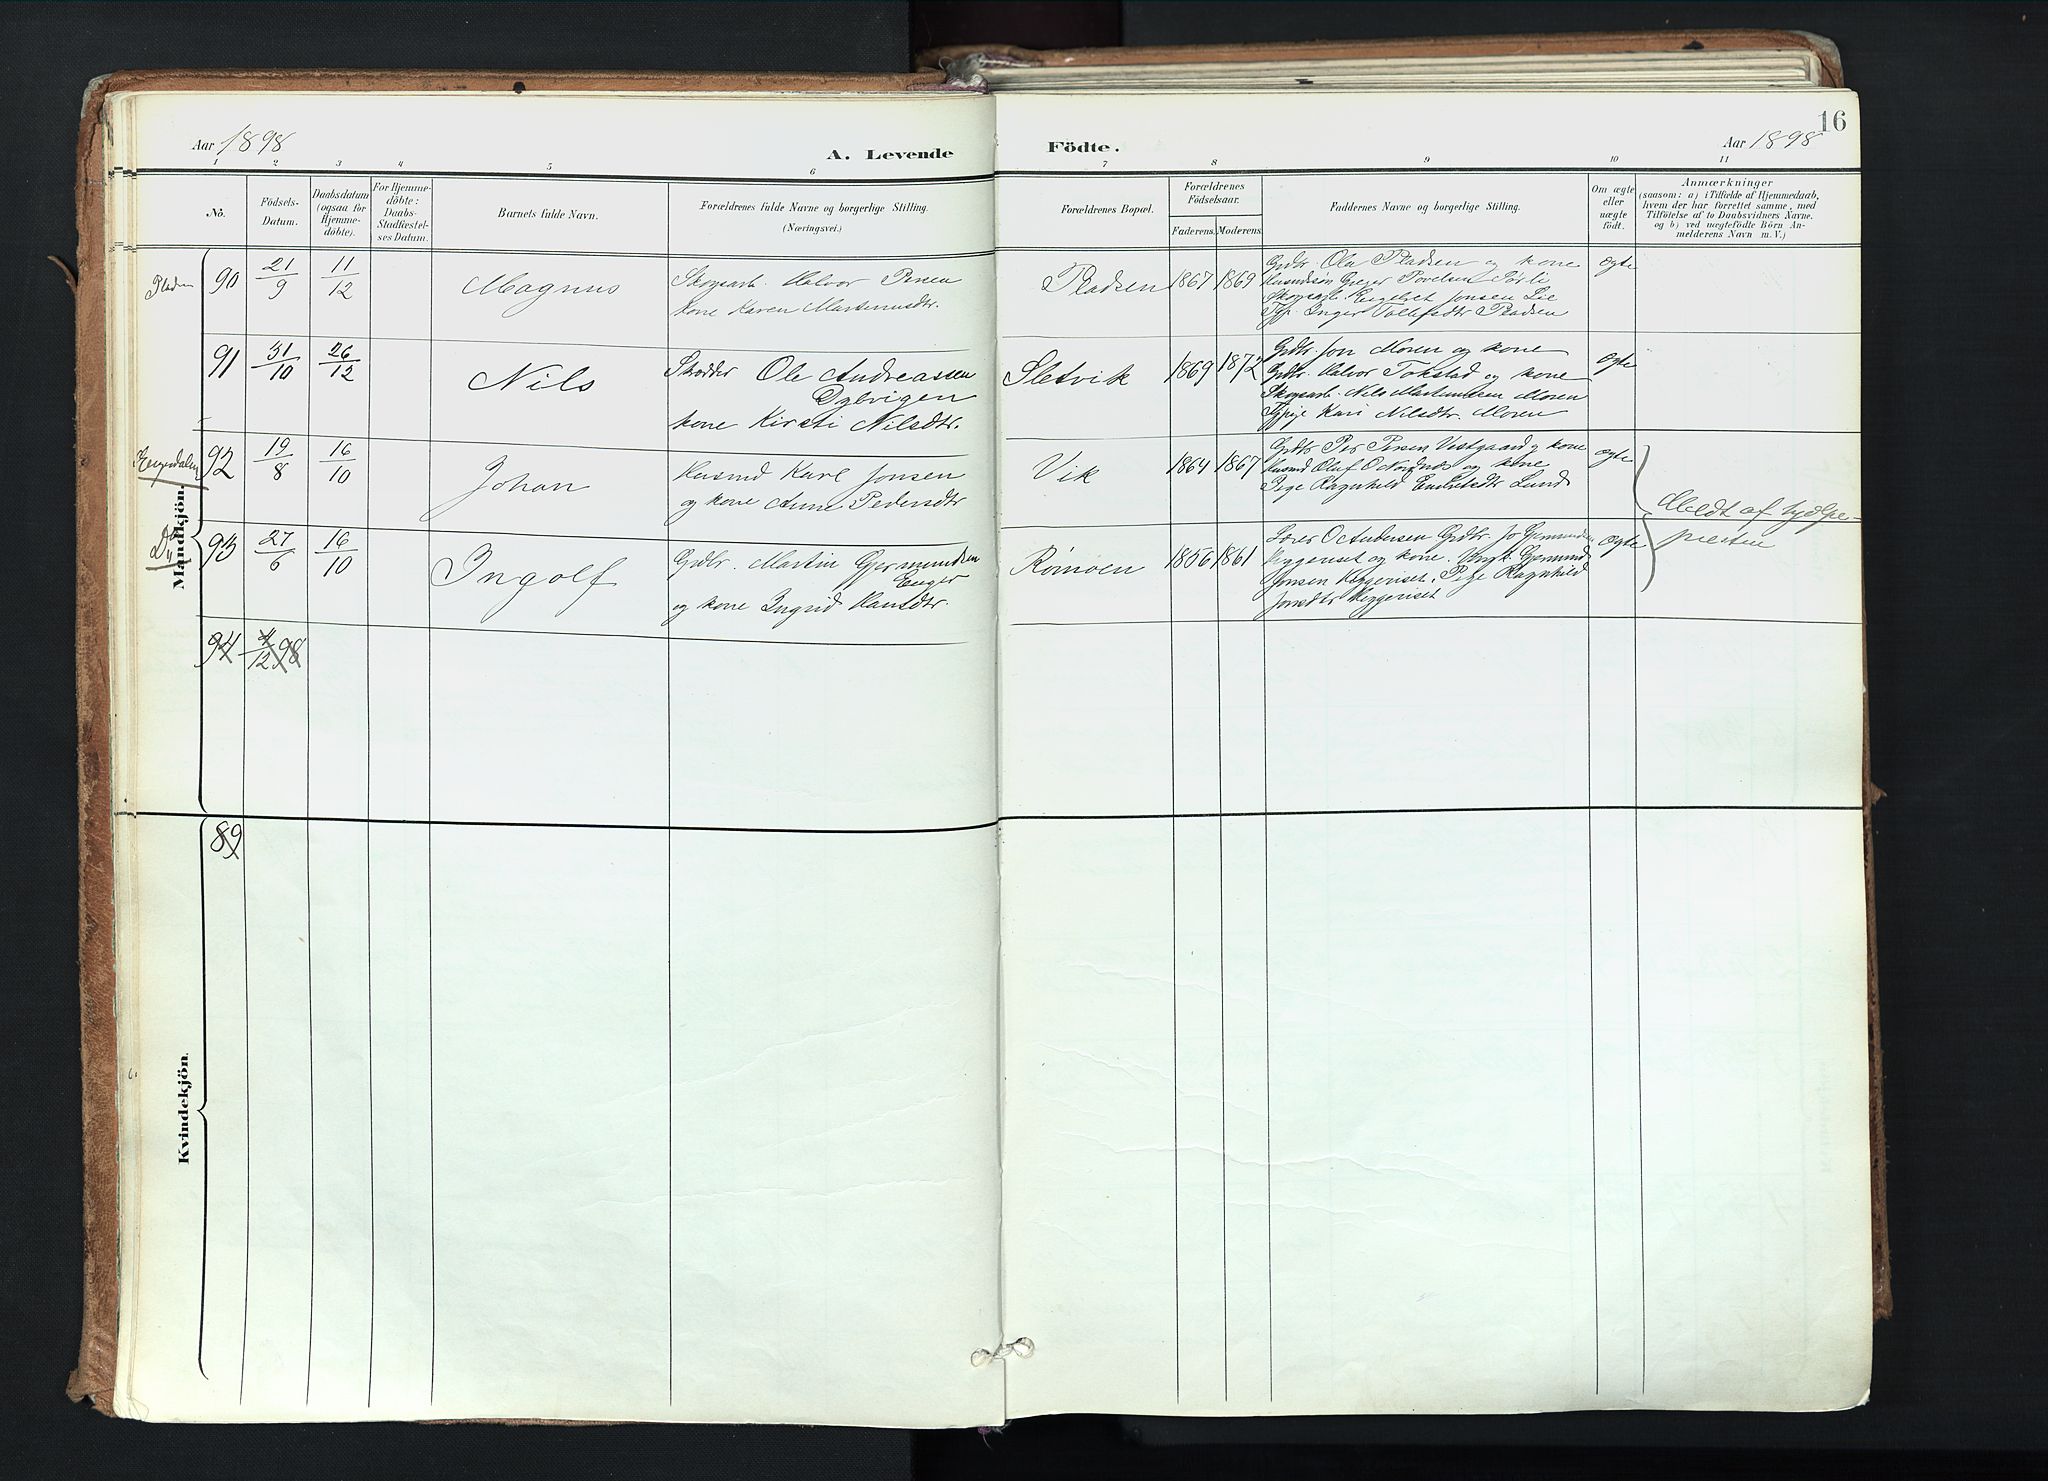 16
Aar 1898
A. Levende
Födte.
Aar 1898
1 2 3 4 5 6 7 8 9 10 11
No.
Födsels-
Datum.
Daabsdatum
(ogsaa for
Hjemme-
döbte).
For Hjemme-
döbte:
Daabs-
Stadfæstel-
ses Datum.
Barnets fulde Navn.
Forældrenes fulde Navne og borgerlige Stilling.
(Næringsvei.)
Forældrenes Bopæl.
Forældrenes
Födselsaar.
Faderens.
Moderens.
Faddernes Navne og borgerlige Stilling.
Om ægte
eller
uægte
födt.
Anmærkninger
(saasom: a) i Tilfælde af Hjemmedaab,
hvem der har forrettet samme, med
Tilföielse af to Daabsvidners Navne.
og b) ved uægtefödte Börn An-
melderens Navn m. V.)
Pladsen
90 21/9 11/12
Magnus
Skogsarb. Halvor Persen
kone Karen Martinusdtr.
Pladsen 1867 1869
Grdbr. Ola Pladsen og kone
Husmdsøn Greger Povelsen
Skogsarb. Jonsen Lie
Inger Pladsen
ægte
91 31/10 26/12
Nils
Skrædder Ole Andreassen
kone Kirsti Nilsdtr.
Sletvik 1869 1872
Grdbr. Jon Moren og kone
Grdbr. Halvor Tokstad og kone
Skogsarb. Nils Martinussen Moren
Kari Nilsdtr. Moren
ægte
92 19/8 16/10
Johan
Husmd Karl Jonsen
og kone Anne Pedersdtr
Vik 1864 1867
Grdbr Per Persen Vestgaard og kone
Husmd Oluf O og kone
Pige Ragnhild Lund
ægte
Meldt af hjælpe-
præsten
Do
93 27/6 16/10
Ingolf
Grdbr. Martin Gjermundsen
Enger
og kone Ingrid Hansdtr.
Rømoen 1856 1861
Andersen Grdbr. Jo Gjermundsen
og kone. Gjermund
Jonsen Pige Ragnhild
Jonsdtr
ægte
94 4/12 98
Mandkjön.
89
Kvindekjön.